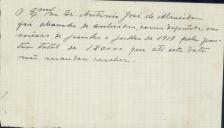 O Exmo Sr. Dr. António José de Almeida
foi abonado de subsidio, como deputado, nos
mezes de junho e julho de 1919 pela quan
tia total de 180$000 que até esta data
não mandou receber.